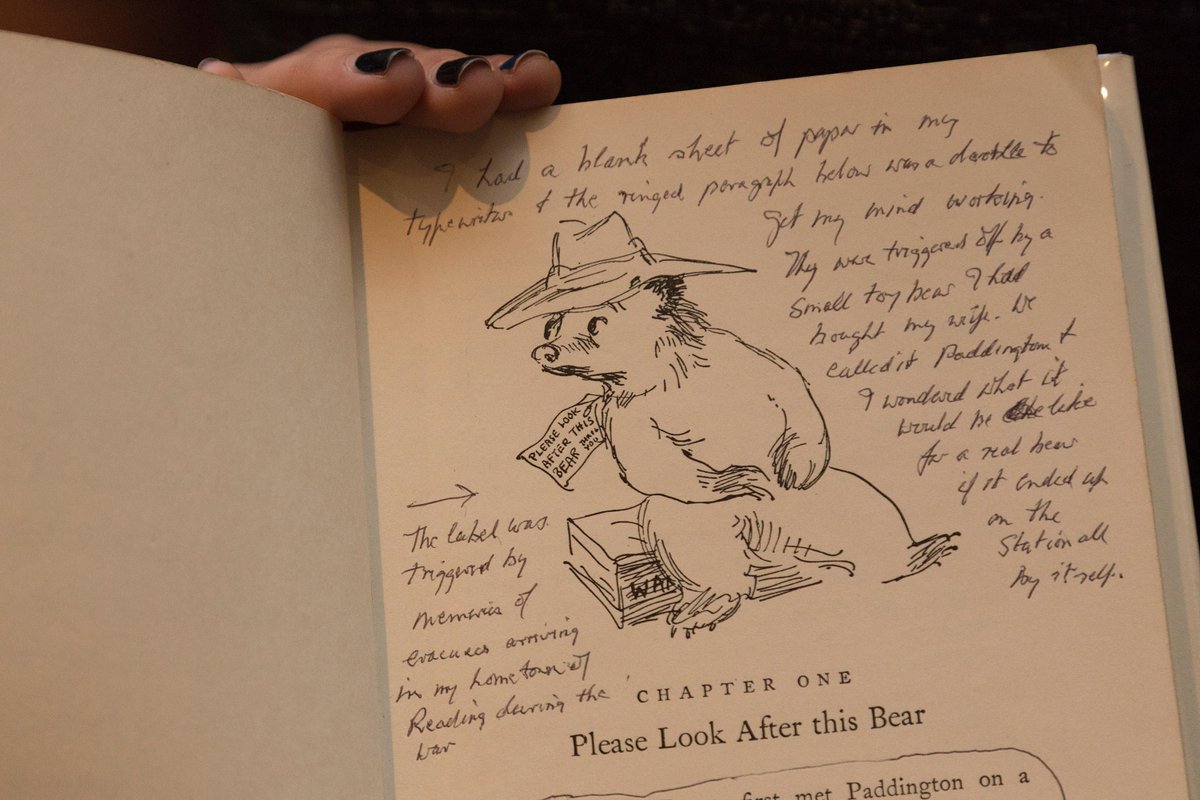 I had a blank sheet of paper in my
typewriter & the ringed paragraph below was a doodle to
get my mind working.
They were triggered off by a
small toy bear I had
bought my wife. We
called it Paddington &
I wondered what it
would be like
for a real bear
if it ended up
on the
station all
by itself.
PLEASE LOOK
AFTER THIS
BEAR THANK
YOU
WAN
The label was
triggered by
memories of
evacuees arriving
in my hometown of
Reading during the
war
CHAPTER ONE
Please Look After this Bear
first met Paddington on a